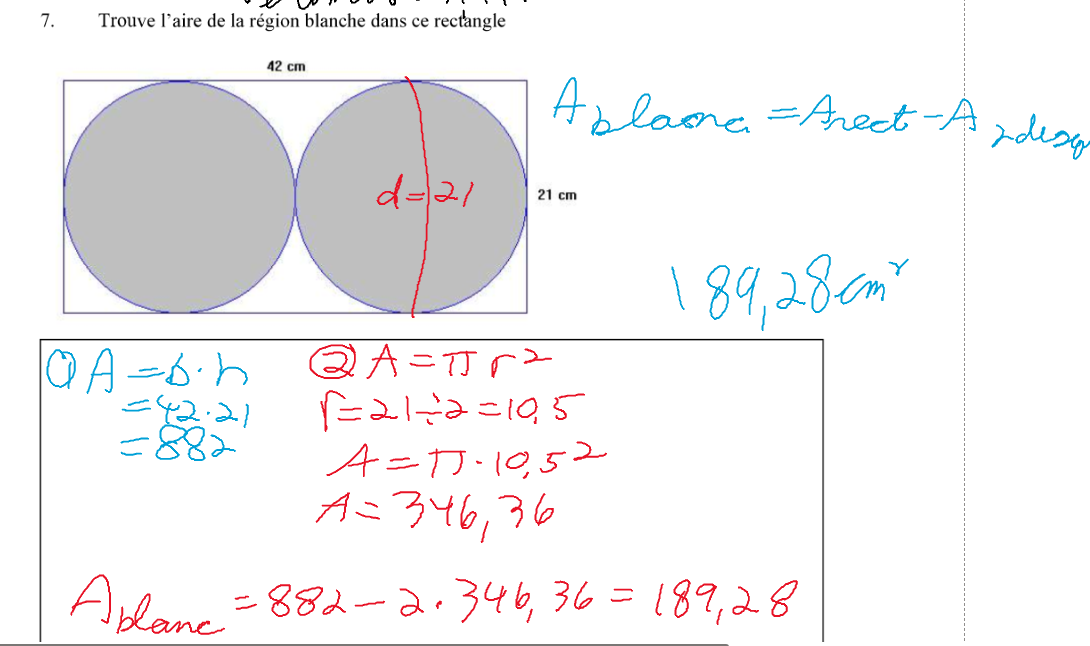 7. Trouve l'aire de la région blanche dans ce rectangle
42 cm
A blanc = A rect - A 2 disq
d = 21
21 cm
189,28 cm²
① A = b · h
= 42 · 21
= 882
② A = π r²
r = 21 ÷ 2 = 10,5
A = π · 10,5²
A = 346,36
A blanc = 882 - 2 · 346,36 = 189,28